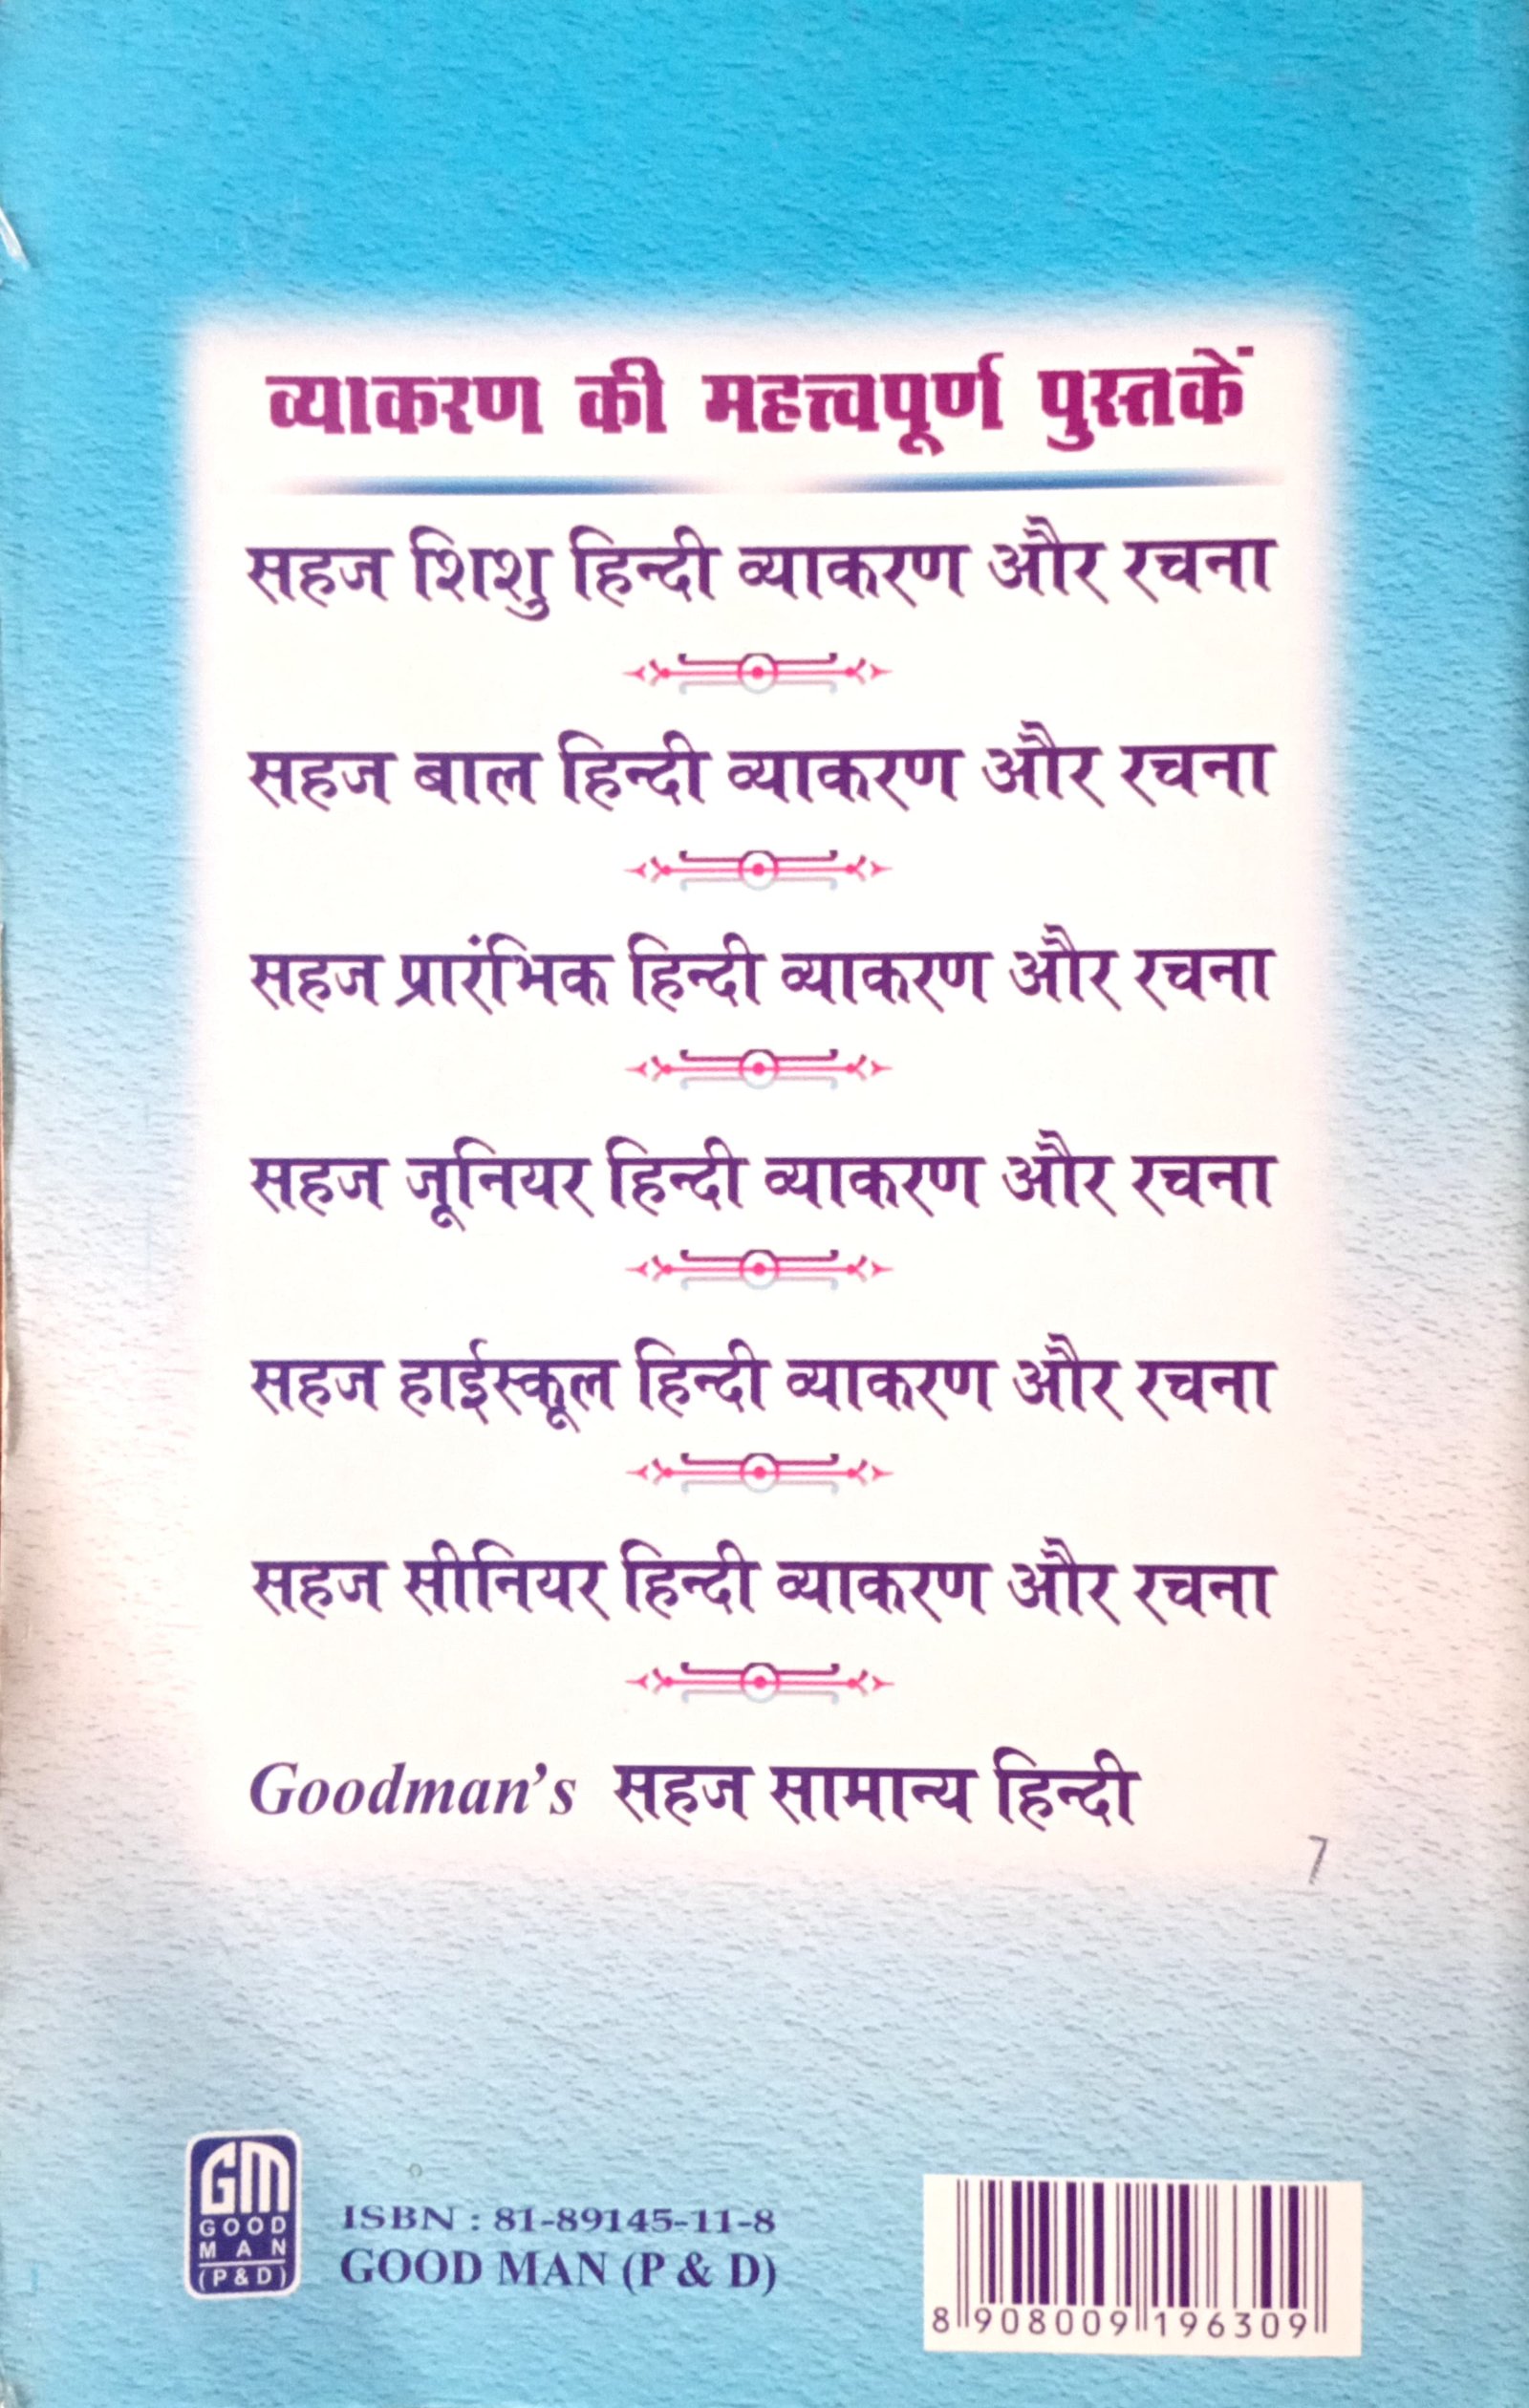 व्याकरण की महत्त्वपूर्ण पुस्तकें
सहज शिशु हिन्दी व्याकरण और रचना
सहज बाल हिन्दी व्याकरण और रचना
सहज प्रारंभिक हिन्दी व्याकरण और रचना
सहज जूनियर हिन्दी व्याकरण और रचना
सहज हाईस्कूल हिन्दी व्याकरण और रचना
सहज सीनियर हिन्दी व्याकरण और रचना
Goodman's सहज सामान्य हिन्दी
7
GM
GOOD
MAN
(P & D)
ISBN : 81-89145-11-8
GOOD MAN (P & D)
8 908009 196309